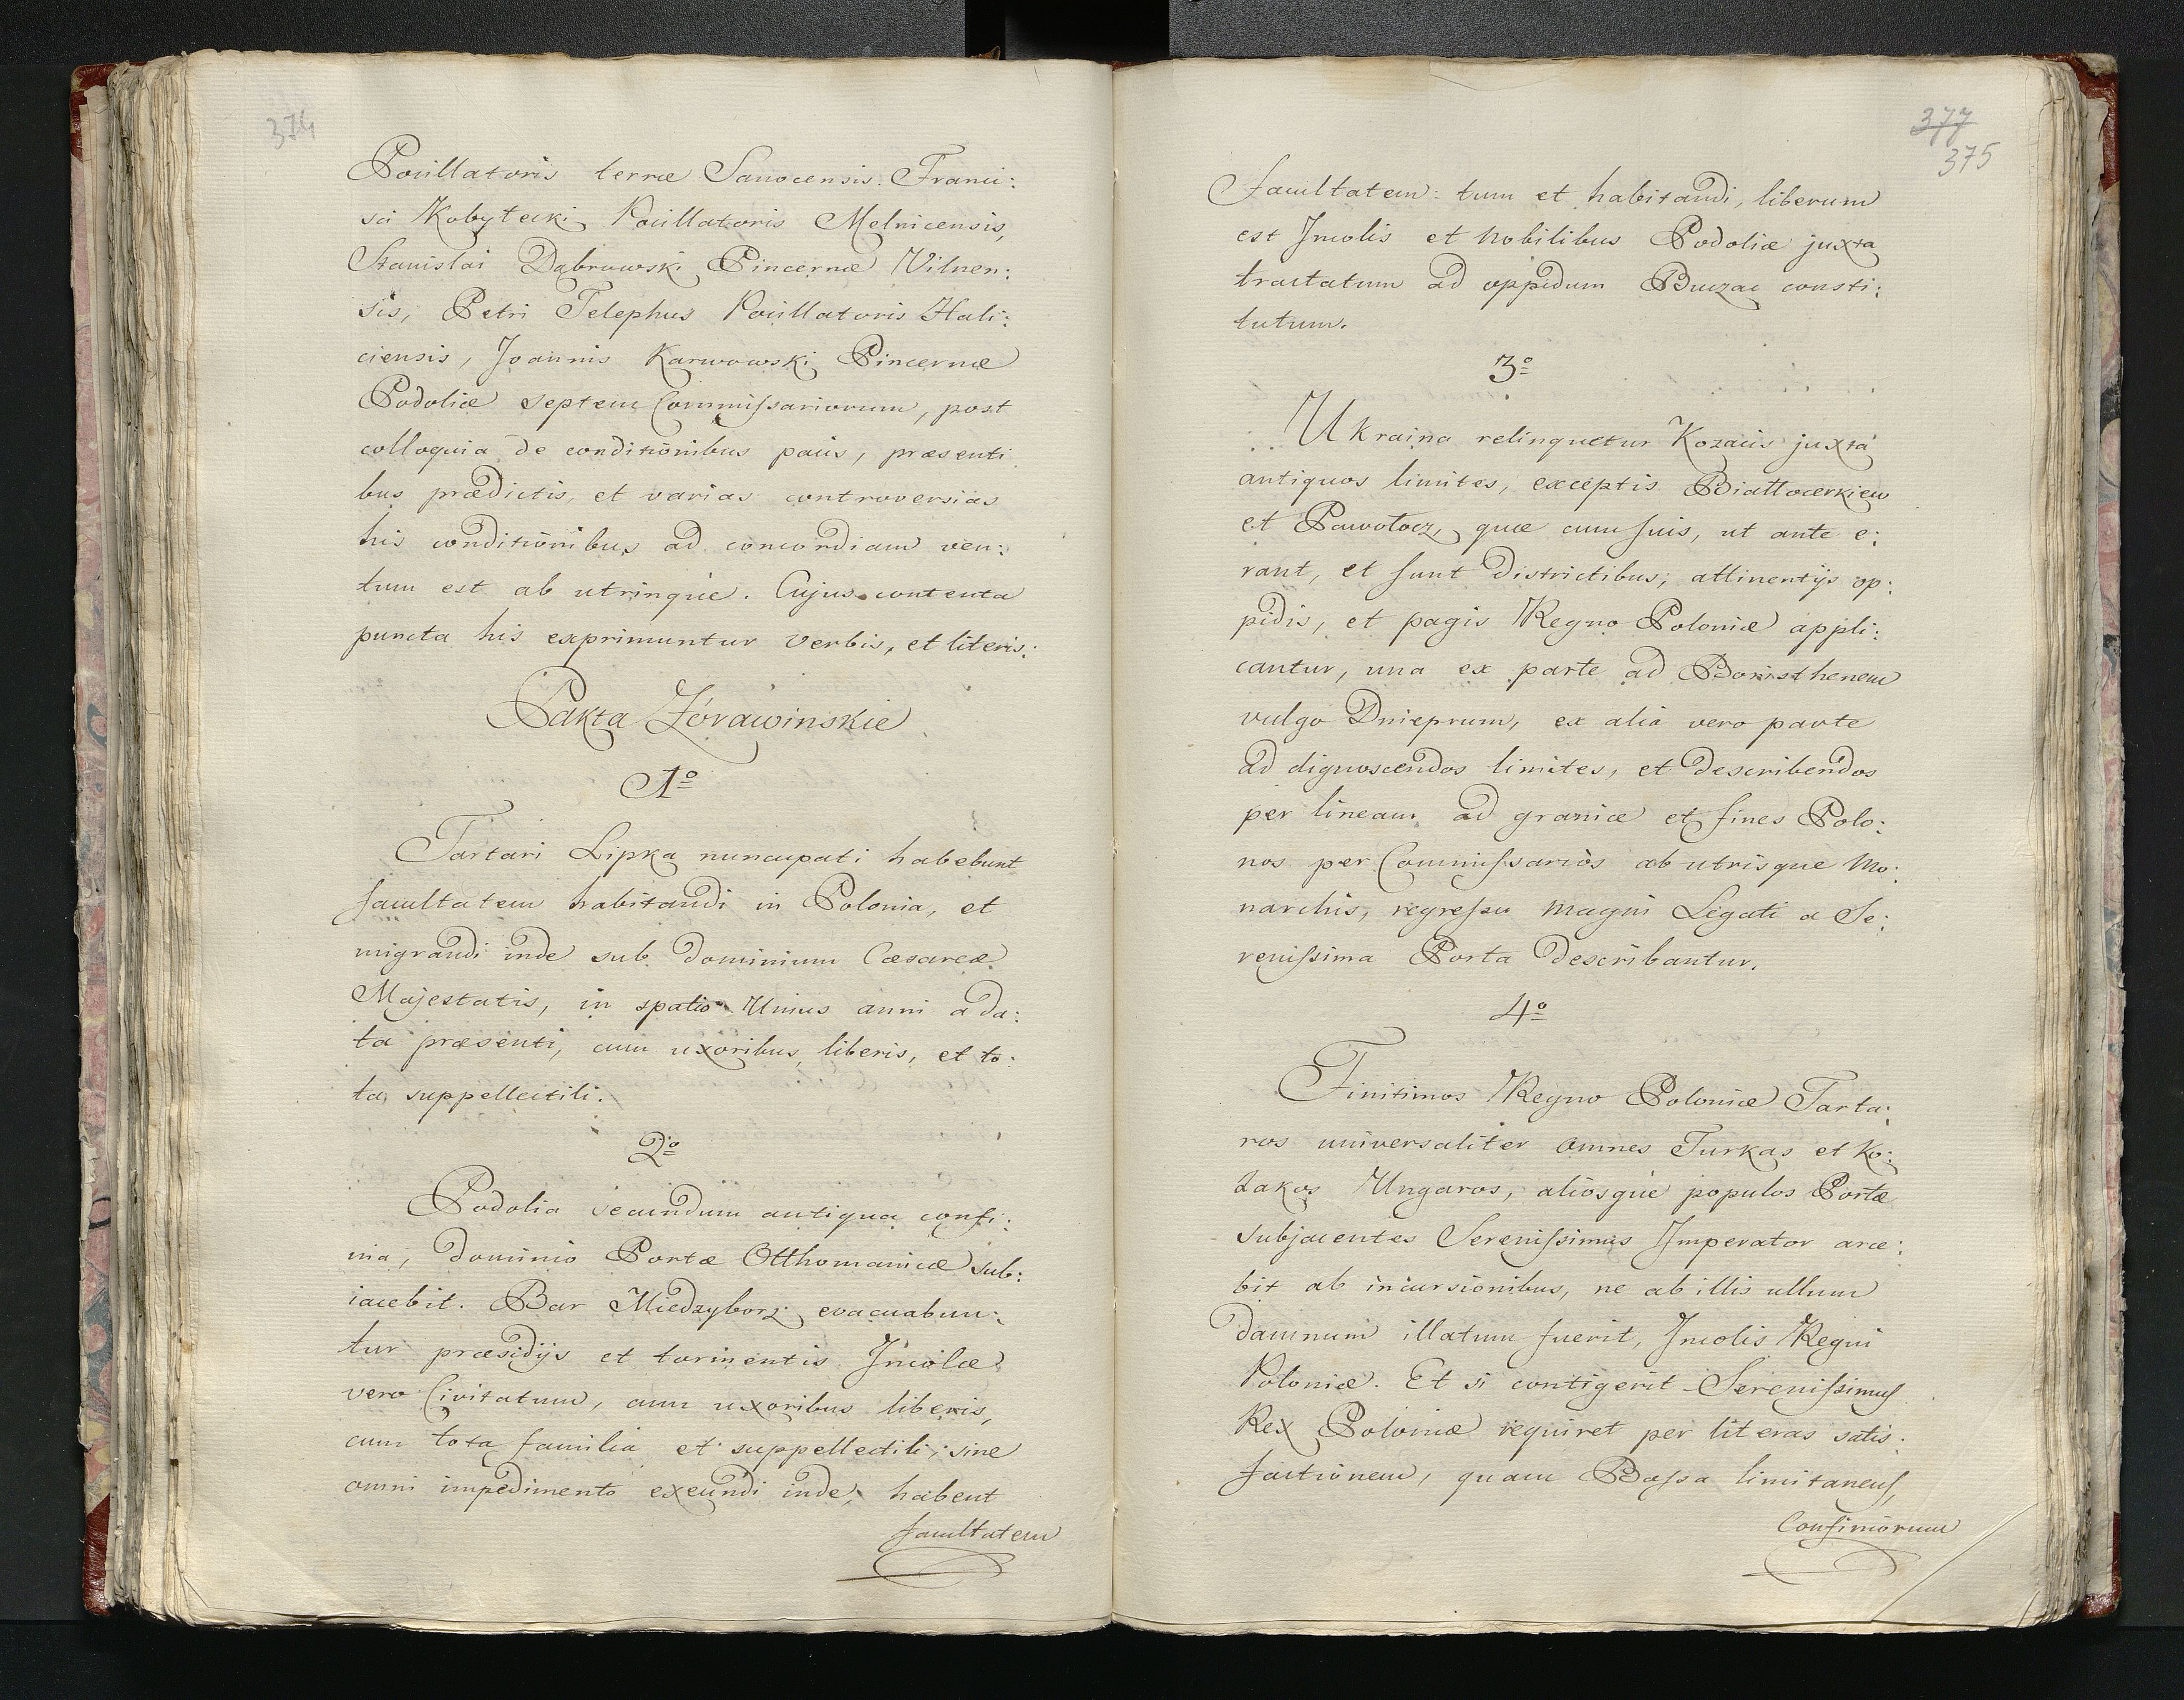 374
Pocillatoris terræ Sanocensis. Franci:
sci Kobyłecki Pocillatoris Melnicensis,
Stanislai Dąbrowski Pincernæ Vilnen:
sis, Petri Telephus Pocillatoris Hali:
ciensis, Joannis Karwowski Pincernæ
Podoliæ septem Commissariorum, post
colloquia de conditionibus pacis, præsenti
bus prædictis, et varias controversias
his conditionibus ad concordiam ven:
tum est ab utrinque. Cujus contenta
puncta his exprimuntur verbis, et literis:
Pakta Żórawinskie
1º
Tartari Lipka nuncupati habebunt
facultatem habitandi in Polonia, et
migrandi inde sub Dominium Cæsareæ
Majestatis, in spatio Unius anni a da:
ta præsenti, cum uxoribus, liberis, et to:
ta suppellectili.
2º
Podolia secundum antiqua confi:
nia, Dominio Portæ Otthomanicæ sub:
iacebit. Bar Miedzyborz evacuabun:
tur præsidijs et tormentis Incolæ
vero Civitatum, cum uxoribus liberis,
cum tota familia et suppellectili, sine
omni impedimento exeundi inde, habent
facultatem
377
375
facultatem: tum et habitandi, liberum
est Incolis et Nobilibus Podoliæ juxta
tractatum ad oppidum Buczac consti:
tutum.
3º
Ukraina relinquetur Kozacis juxta
antiquos limites, exceptis Biattocerkiew
et Pawołocz, quæ cum suis, ut ante e:
rant, et sunt Districtibus; attinentijs op:
pidis, et pagis Regno Poloniæ appli:
cantur, una ex parte ad Boristhenem
vulgo Dnieprum, ex alia vero parte
ad dignoscendos limites, et describendos
per lineam ad granicæ et fines Polo:
nos per Commissarios ab utrisque Mo:
narchis, regressu Magni Legati a Se:
renissima Porta Describantur.
4º
Finitimos Regno Poloniæ Tarta:
ros universaliter omnes Turkas et Ko:
zakos Ungaros, aliosque populos Portæ
subjacentes Serenissimus Imperator arce:
bit ab incursionibus, ne ab illis ullum
Damnum illatum fuerit, Incolis Regni
Poloniæ. Et si contigerit Serenissimus
Rex Poloniæ requiret per literas satis:
factionem, quam Bassa limitaneus,
Confiniorum